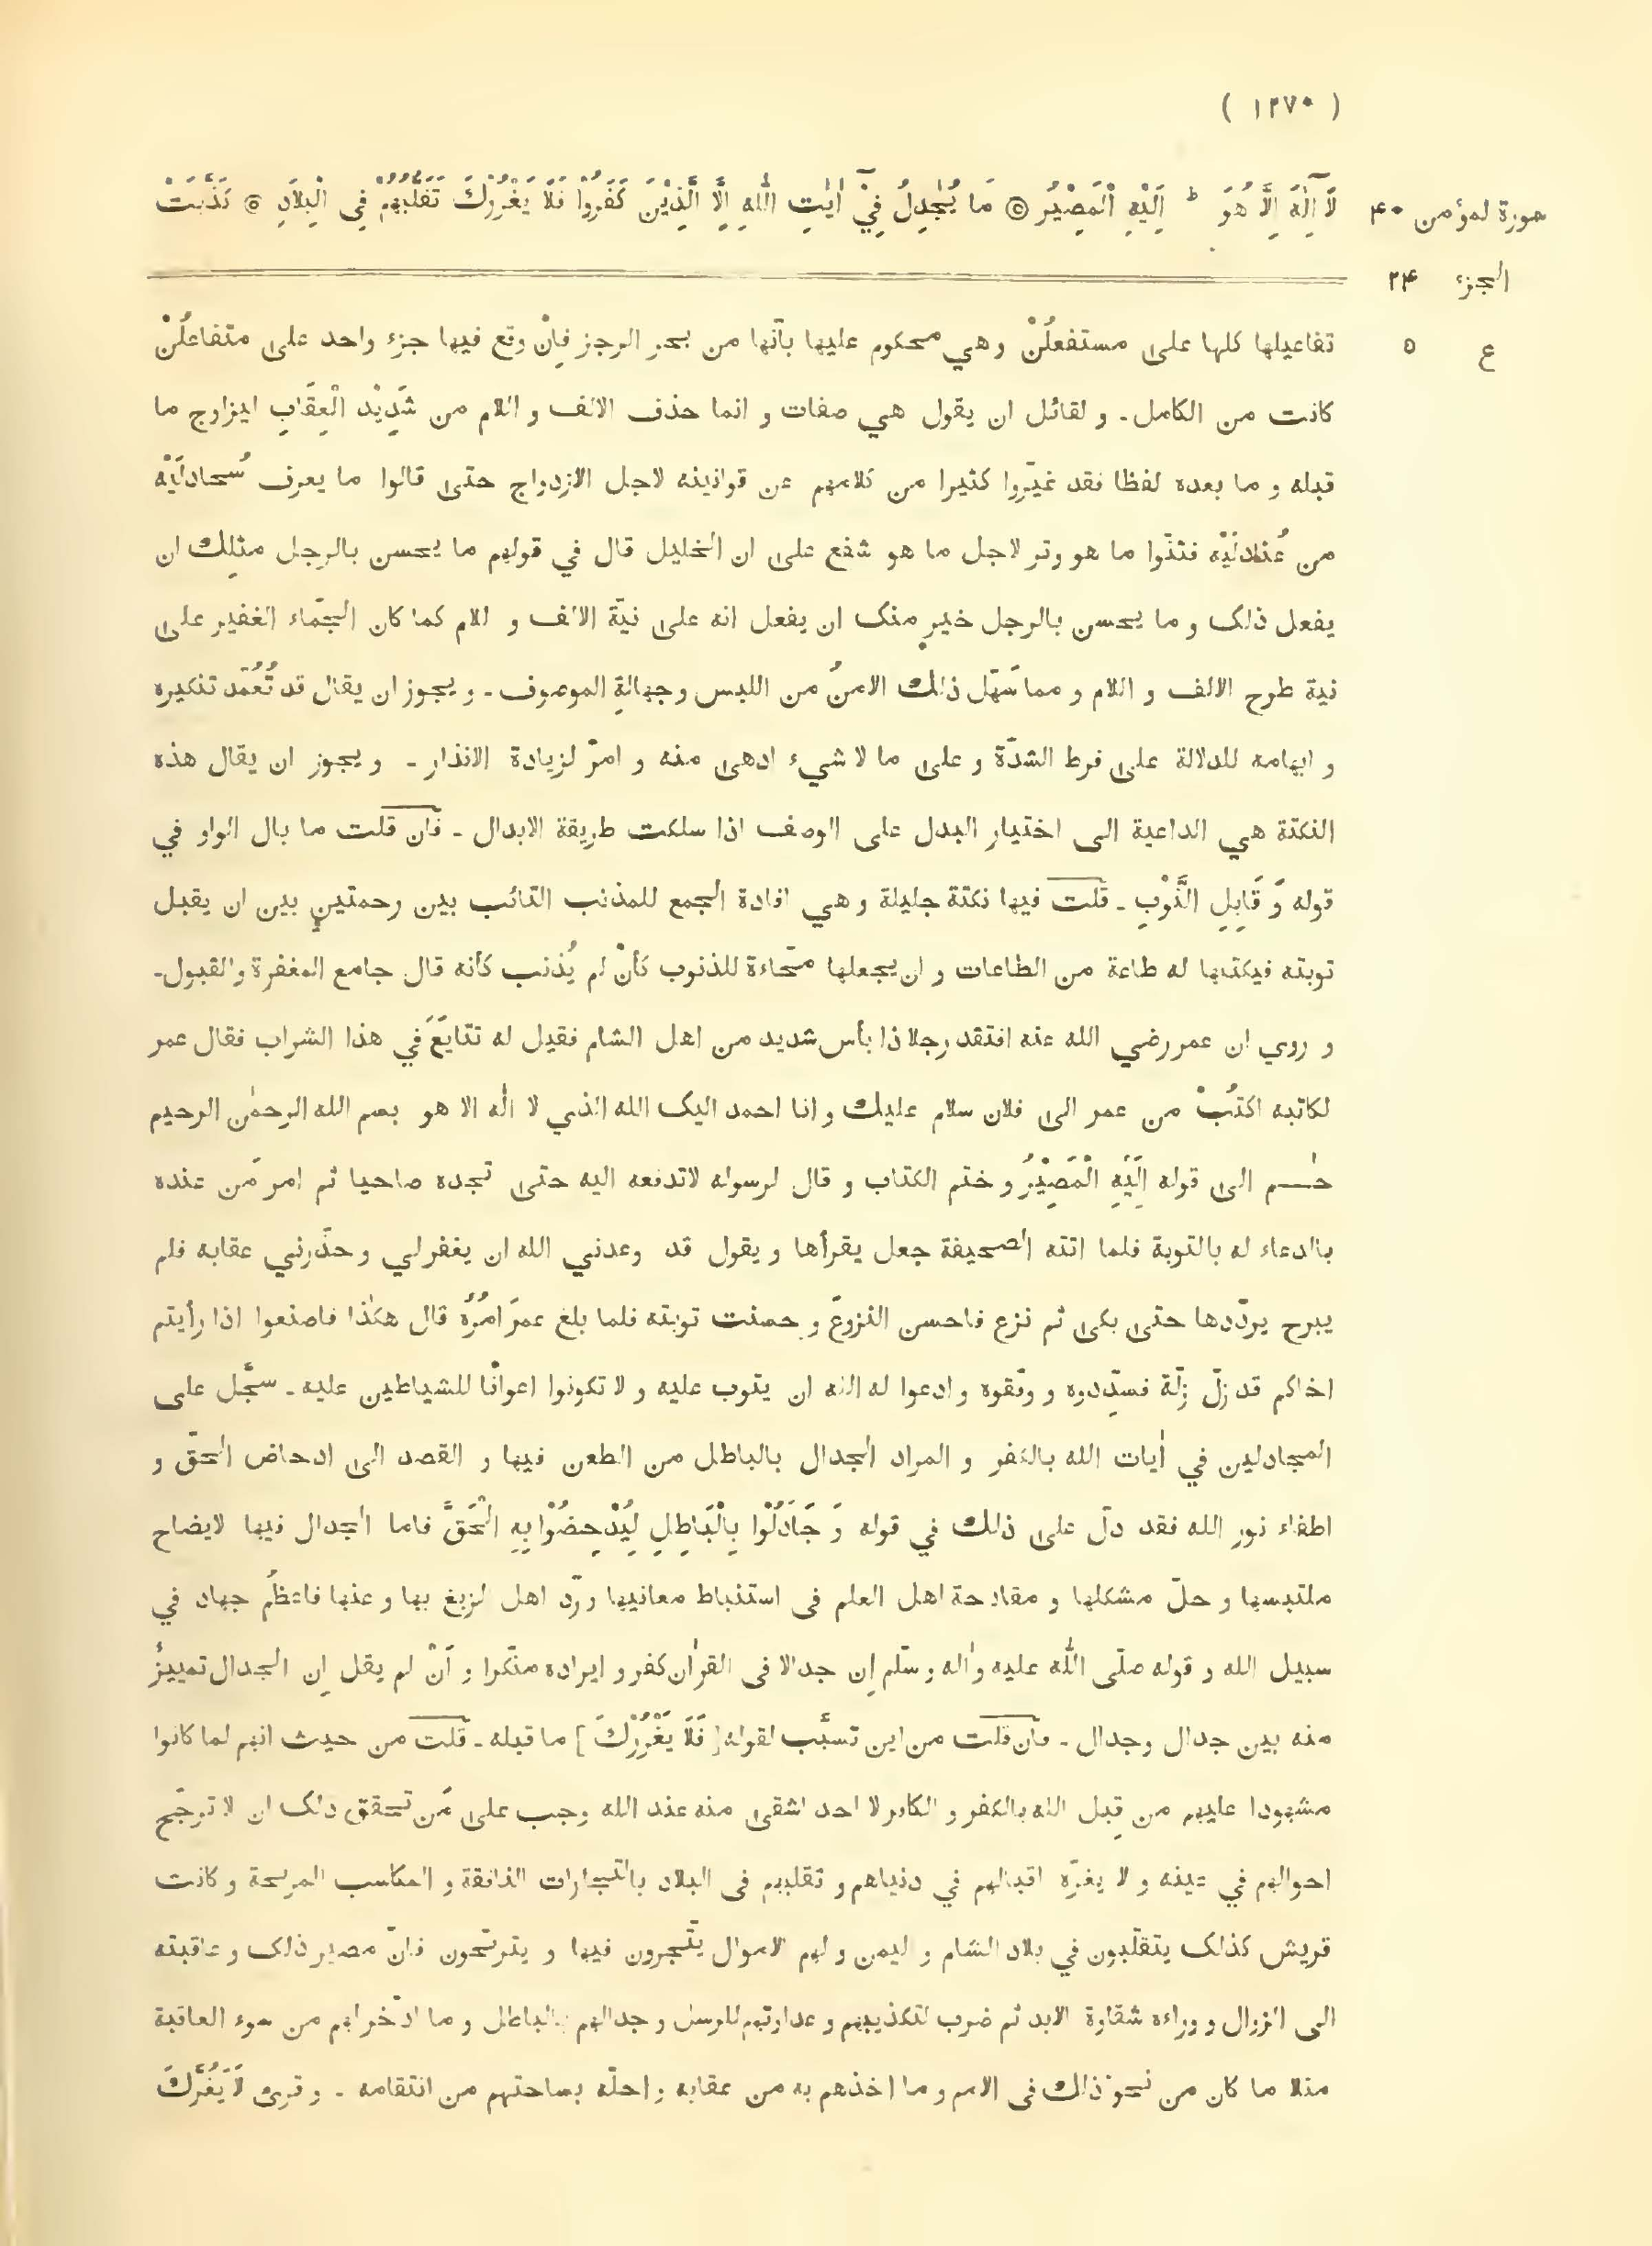 ( ١٢٧٠ )
سورة المؤمن ۴۰
الجزء ۲۴
ع ٥
لَآ اِلٰهَ اِلَّا هُوَ ط اِلَيْهِ الْمَصِيْرُ ۞ مَا يُجَادِلُ فِيْٓ اٰيٰتِ اللّٰهِ اِلَّا الَّذِيْنَ كَفَرُوْا فَلَا يَغْرُرْكَ تَقَلُّبُهُمْ فِي الْبِلَادِ ۞ كَذَّبَتْ
تفاعيلها كلها على مستفعلُنْ وهي محكوم عليها بأنّها من بحر الرجز فإنْ وقع فيها جزء واحد على متفاعلُنْ
كانت من الكامل ـ و لقائل ان يقول هي صفات و انما حذف الالف و اللام من شَدِيْد الْعِقَابِ ليزاوج ما
قبله و ما بعده لفظا فقد غيّروا كثيرا من كلامهم عن قوانينه لاجل الازدواج حتى قالوا ما يعرف سُحادلَيْه
من عُنادلَيْه فثنّوا ما هو وتر لاجل ما هو شفع على ان الخليل قال في قولهم ما يحسن بالرجل مثلِك ان
يفعل ذلك و ما يحسن بالرجل خيرٍ منك ان يفعل انه على نيّة الالف و اللام كما كان الجمّاء الغفير على
نية طرح الالف و اللام و مما سَهّل ذلك الامنُ من اللبس وجهالةِ الموصوف ـ و يجوز ان يقال قد تُعُمّد تنكيره
و ابهامه للدلالة على فرط الشدّة و على ما لا شيء ادهى منه و امرّ لزيادة الانذار ـ و يجوز ان يقال هذه
النكتة هي الداعية الى اختيار البدل على الوصف اذا سلكت طريقة الابدال ـ فان قلت ما بال الواو في
قوله وَ قَابِلِ التَّوْبِ ـ قلت فيها نكتة جليلة وهي افادة الجمع للمذنب التائب بين رحمتين بين ان يقبل
توبته فيكتبها له طاعة من الطاعات و ان يجعلها محّاءة للذنوب كأنْ لم يُذنب كأنه قال جامع المغفرة والقبول ـ
و روي ان عمر رضي الله عنه افتقد رجلا ذا بأس شديد من اهل الشام فقيل له تتايَعَ في هذا الشراب فقال عمر
لكاتبه اكتُبْ من عمر الى فلان سلام عليك و انا احمد اليك الله الذي لا اله الا هو بسم الله الرحمٰن الرحيم
حٰــم الى قوله اِلَيْهِ الْمَصِيْرُ و ختم الكتاب و قال لرسوله لاتدفعه اليه حتى تجده صاحيا ثم امر مَن عنده
بالدعاء له بالتوبة فلما اتته الصحيفة جعل يقرأها و يقول قد وعدني الله ان يغفرلي و حذّرني عقابه فلم
يبرح يردّدها حتى بكى ثم نزع فاحسن النزوعَ و حسنت توبته فلما بلغ عمرَ امرُهُ قال هكذا فاصنعوا اذا رأيتم
اخاكم قد زلّ زلّة فسدّدوه و وقّقوه و ادعوا له الله ان يتوب عليه و لا تكونوا اعوانًا للشياطين عليه ـ سجّل على
المجادلين في اٰيات الله بالكفر و المراد الجدال بالباطل من الطعن فيها و القصد الى ادحاض الحقّ و
اطفاء نور الله فقد دلّ على ذلك في قوله وَ جَادَلُوْا بِالْبَاطِلِ لِيُدْحِضُوْا بِهِ الْحَقَّ فاما الجدال فيها لايضاح
ملتبسها و حلّ مشكلها و مقادحة اهل العلم فى استنباط معانيها و ردّ اهل الزيغ بها و عنها فاعظمُ جهاد في
سبيل الله و قوله صلّى اللّٰه عليه واٰله و سلّم اِن جدالا فى القراٰن كفر و ايراده منكّرا و اَنْ لم يقل اِن الجدال تمييزٌ
منه بين جدال وجدال ـ فان قلت من اين تسبّب لقوله [ فَلَا يَغْرُرْكَ ] ما قبله ـ قلت من حيث انهم لما كانوا
مشهودا عليهم من قِبل الله بالكفر و الكافر لا احد اشقى منه عند الله وجب على مَن تحقق ذلك ان لا ترجّح
احوالهم في عينه و لا يغرّه اقبالهم في دنياهم و تقلبهم فى البلاد بالتجارات النافقة و المكاسب المربحة و كانت
قريش كذلك يتقلّبون في بلاد الشام و اليمن و لهم الاموال يتّجرون فيها و يتربّحون فانّ مصير ذلك و عاقبته
الى الزوال و وراءه شقاوة الابد ثم ضرب لتكذيبهم و عداوتهم للرسل و جدالهم بالباطل و ما ادّخر لهم من سوء العاقبة
مثلا ما كان من نحو ذلك فى الامم و ما اخذهم به من عقابه و احلّه بساحتهم من انتقامه ـ و قرئ لَا يَغُرَّكَ